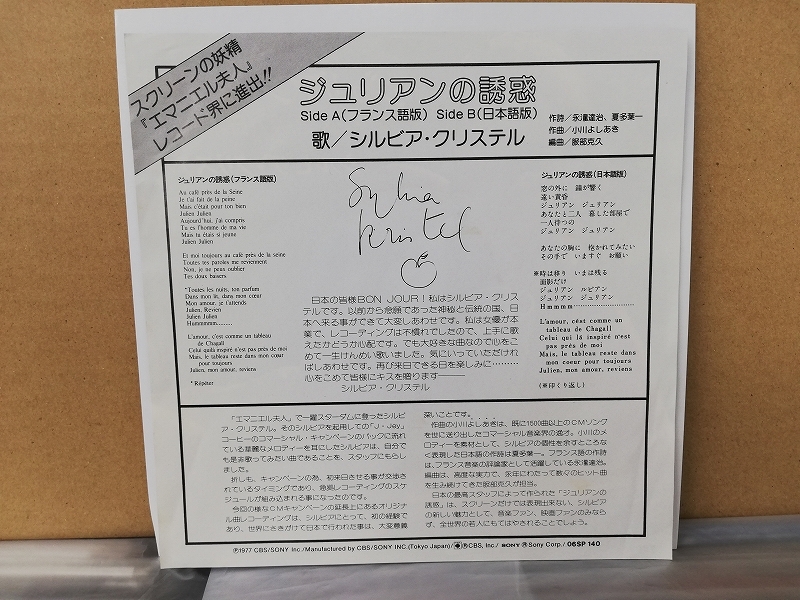 スクリーンの妖精
『エマニエル夫人』
レコード界に進出!!
ジュリアンの誘惑
Side A(フランス語版) Side B(日本語版)
歌/シルビア・クリステル
作詩/永滝達治、夏多葉一
作曲/小川よしあき
編曲/服部克久
ジュリアンの誘惑(フランス語版)
Au café près de la Seine
Je t'ai fait de la peine
Mais c'était pour ton bien
Julien Julien
Aujourd'hui, j'ai compris
Tu es l'homme de ma vie
Mais tu étais si jeune
Julien Julien
Et moi toujours au café près de la seine
Toutes tes paroles me reviennent
Non, je ne peux oublier
Tes doux baisers
*Toutes les nuits, ton parfum
Dans mon lit, dans mon cœur
Mon amour, je t'attends
Julien, Revien
Julien Julien
Hummmm.......
L'amour, c'est comme un tableau
de Chagall
Celui qu'là inspiré n'est pas près de moi
Mais, le tableau reste dans mon cœur
pour toujours
Julien, mon amour, reviens
*Répéter
Sylvia
Kristel
日本の皆様BON JOUR!私はシルビア・クリス
テルです。以前から念願であった神秘と伝統の国、日
本へ来る事ができて大変しあわせです。私は女優が本
業で、レコーディングは不慣れでしたので、上手に歌
えたかどうか心配です。でも大好きな曲なので心をこ
めて一生けんめい歌いました。気にいっていただけれ
ばしあわせです。再び来日できる日を楽しみに………
心をこめて皆様にキスを贈ります───
シルビア・クリステル
ジュリアンの誘惑(日本語版)
窓の外に 鐘が響く
遠い黄昏
ジュリアン ジュリアン
あなたと二人 暮した部屋で
一人待つの
ジュリアン ジュリアン
あなたの胸に 抱かれてみたい
その手で いますぐ お願い
※時は移り いまは残る
面影だけ
ジュリアン ルビアン
ジュリアン ジュリアン
Hmmmm……………………
L'amour, c'est comme un
tableau de Chagall
Celui qu'là inspiré n'est
pas près de moi
Mais, le tableau reste dans
mon cœur pour toujours
Julien, mon amour, reviens
(※印くり返し)
「エマニエル夫人」で一躍スターダムに登ったシルビ
ア・クリステル。そのシルビアを起用しての「J・Jey」
コーヒーのコマーシャル・キャンペーンのバックに流れ
ている華麗なメロディーを耳にしたシルビアは、自分で
も是非歌ってみたい曲であることを、スタッフにもらし
ました。
折しも、キャンペーンの為、初来日させる事が交渉さ
れているタイミングであり、急拠レコーディングのスケ
ジュールが組み込まれる事になったのです。
今回の様なCMキャンペーンの延長上にあるオリジナ
ル曲レコーディングは、シルビアにとって、初の経験で
あり、世界にさきがけて日本で行われた事は、大変意義
深いことです。
作曲の小川よしあきは、既に1500曲以上のCMソング
を世に送り出したコマーシャル音楽界の逸才。小川のメ
ロディーを素材として、シルビアの個性を余すところな
く表現した日本語の作詩は夏多葉一。フランス語の作詩
は、フランス音楽の評論家として活躍している永滝達治。
編曲は、高度な実力で、永年にわたって数々のヒット曲
を生み続けてきた服部克久が担当。
日本の最高スタッフによって作られた「ジュリアンの
誘惑」は、スクリーンだけでは表現出来ない、シルビア
の新しい魅力として、音楽ファン、映画ファンのみなら
ず、全世界の若人にもてはやされることでしょう。
Ⓟ1977 CBS/SONY Inc./Manufactured by CBS/SONY INC.(Tokyo Japan)/ ® CBS, Inc./ SONY ® Sony Corp./ 06SP 140